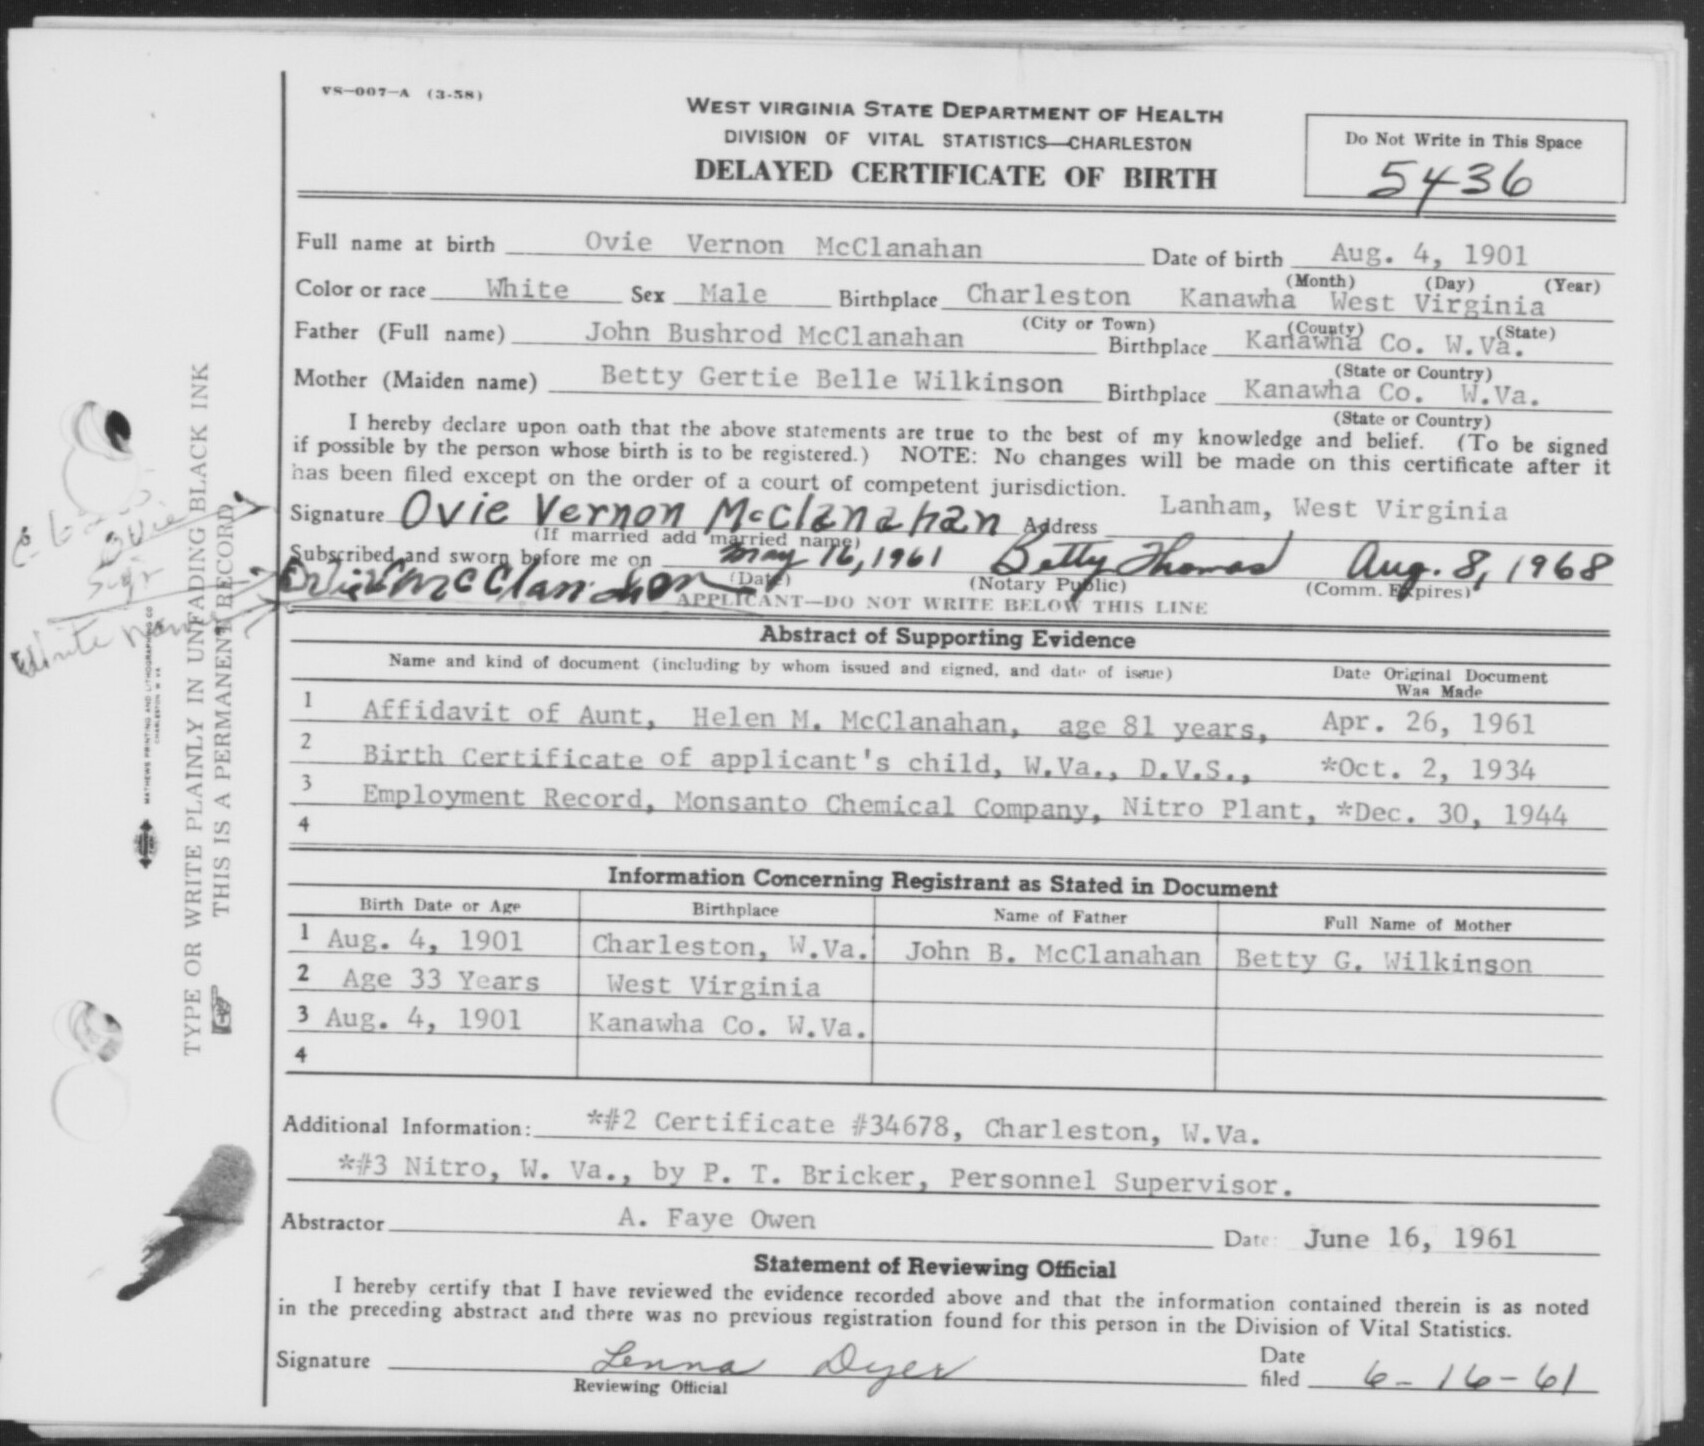 VS-007-A (3-58)
WEST VIRGINIA STATE DEPARTMENT OF HEALTH
DIVISION OF VITAL STATISTICS—CHARLESTON
DELAYED CERTIFICATE OF BIRTH
Do Not Write in This Space
5436
Full name at birth Ovie Vernon McClanahan Date of birth Aug. 4, 1901
(Month) (Day) (Year)
Color or race White Sex Male Birthplace Charleston Kanawha West Virginia
(City or Town) (County) (State)
Father (Full name) John Bushrod McClanahan Birthplace Kanawha Co. W.Va.
(State or Country)
Mother (Maiden name) Betty Gertie Belle Wilkinson Birthplace Kanawha Co. W.Va.
(State or Country)
I hereby declare upon oath that the above statements are true to the best of my knowledge and belief. (To be signed
if possible by the person whose birth is to be registered.) NOTE: No changes will be made on this certificate after it
has been filed except on the order of a court of competent jurisdiction.
Signature Ovie Vernon McClanahan Address Lanham, West Virginia
(If married add married name)
Subscribed and sworn before me on May 16, 1961 Betty Thomas Aug. 8, 1968
(Date) (Notary Public) (Comm. Expires)
McClanahan
APPLICANT—DO NOT WRITE BELOW THIS LINE
Abstract of Supporting Evidence
Name and kind of document (including by whom issued and signed, and date of issue) Date Original Document
Was Made
1 Affidavit of Aunt, Helen M. McClanahan, age 81 years, Apr. 26, 1961
2 Birth Certificate of applicant's child, W.Va., D.V.S., *Oct. 2, 1934
3 Employment Record, Monsanto Chemical Company, Nitro Plant, *Dec. 30, 1944
4
Information Concerning Registrant as Stated in Document
Birth Date or Age Birthplace Name of Father Full Name of Mother
1 Aug. 4, 1901 Charleston, W.Va. John B. McClanahan Betty G. Wilkinson
2 Age 33 Years West Virginia
3 Aug. 4, 1901 Kanawha Co. W.Va.
4
Additional Information: *#2 Certificate #34678, Charleston, W.Va.
*#3 Nitro, W. Va., by P. T. Bricker, Personnel Supervisor.
Abstractor A. Faye Owen Date: June 16, 1961
Statement of Reviewing Official
I hereby certify that I have reviewed the evidence recorded above and that the information contained therein is as noted
in the preceding abstract and there was no previous registration found for this person in the Division of Vital Statistics.
Signature Lenna Dyer Date
filed 6-16-61
Reviewing Official
TYPE OR WRITE PLAINLY IN UNFADING BLACK INK
THIS IS A PERMANENT RECORD
MATHEWS PRINTING AND LITHOGRAPHING CO
CHARLESTON W VA
Ovie
Write name